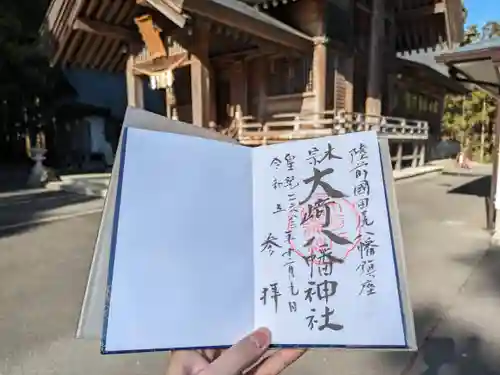 陸前國田尻八幡鎮座
本宗
大崎八幡神社
皇紀二六八三年十一月九日
令和五
参拝